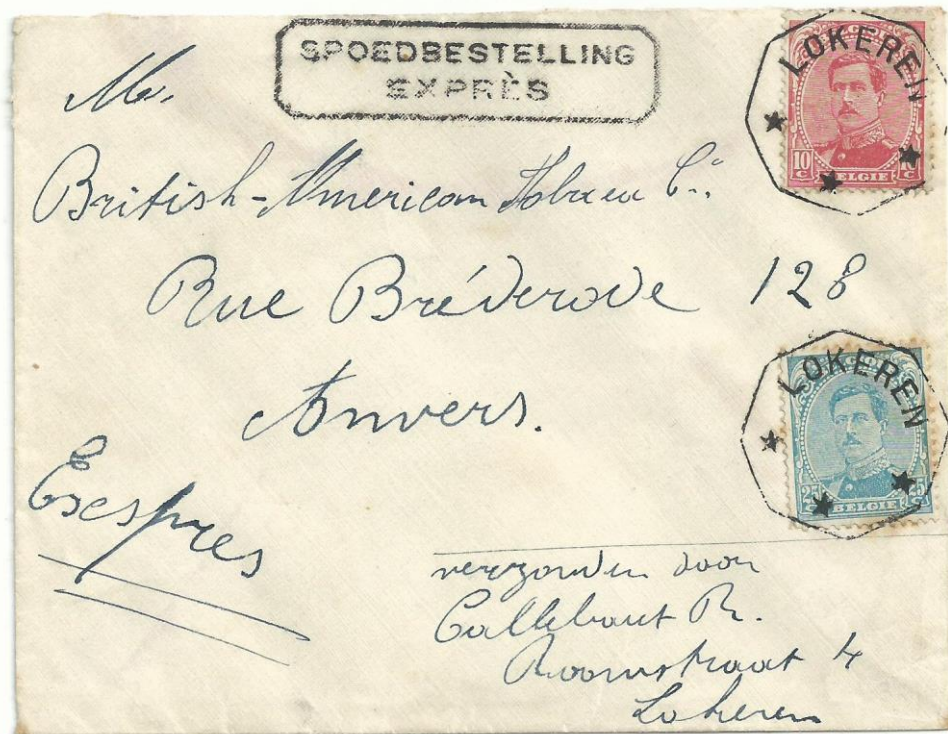 SPOEDBESTELLING
EXPRÈS
LOKEREN
10 C 10 C
BELGIE
Mr.
British-American Tobacco Cº.
Rue Bréderode 128
Anvers.
LOKEREN
25 C 25 C
BELGIE
Exespres
verzonden door
Callebaut R.
Roomstraat 4
Lokeren